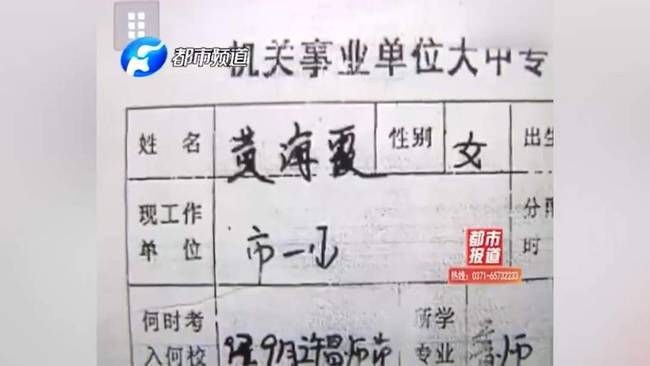 都市频道
机关事业单位大中专
姓 名 黄海霞 性别 女 出生
现工作
单 位 市一小
时
都市
报道
热线：0371-65732233
何时考
入何校 9月许昌师范
所学
专业